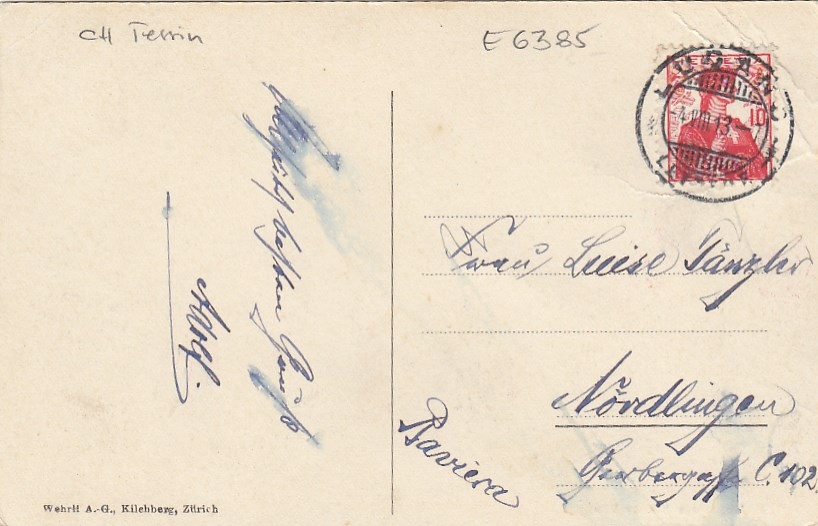 CH Tessin
E 6385
LUGANO
10
Herzlichst besten Gruß
Adolf.
Frau Luise Tänzler
Nördlingen
Gerbergasse C. 102.
Baviera
Wehrli A.-G., Kilchberg, Zürich